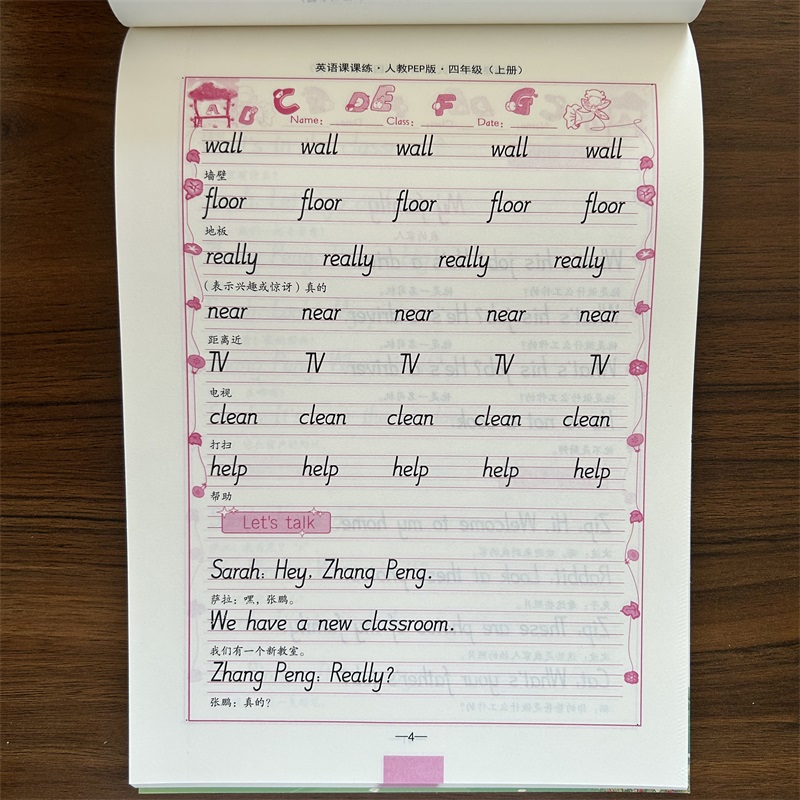 英语课课练·人教PEP版·四年级（上册）
A B C D E F G
Name: Class: Date:
wall wall wall wall wall
墙壁
floor floor floor floor floor
地板
really really really really
（表示兴趣或惊讶）真的
near near near near near
距离近
TV TV TV TV TV
电视
clean clean clean clean clean
打扫
help help help help help
帮助
Let's talk
Sarah: Hey, Zhang Peng.
萨拉：嘿，张鹏。
We have a new classroom.
我们有一个新教室。
Zhang Peng: Really?
张鹏：真的？
—4—